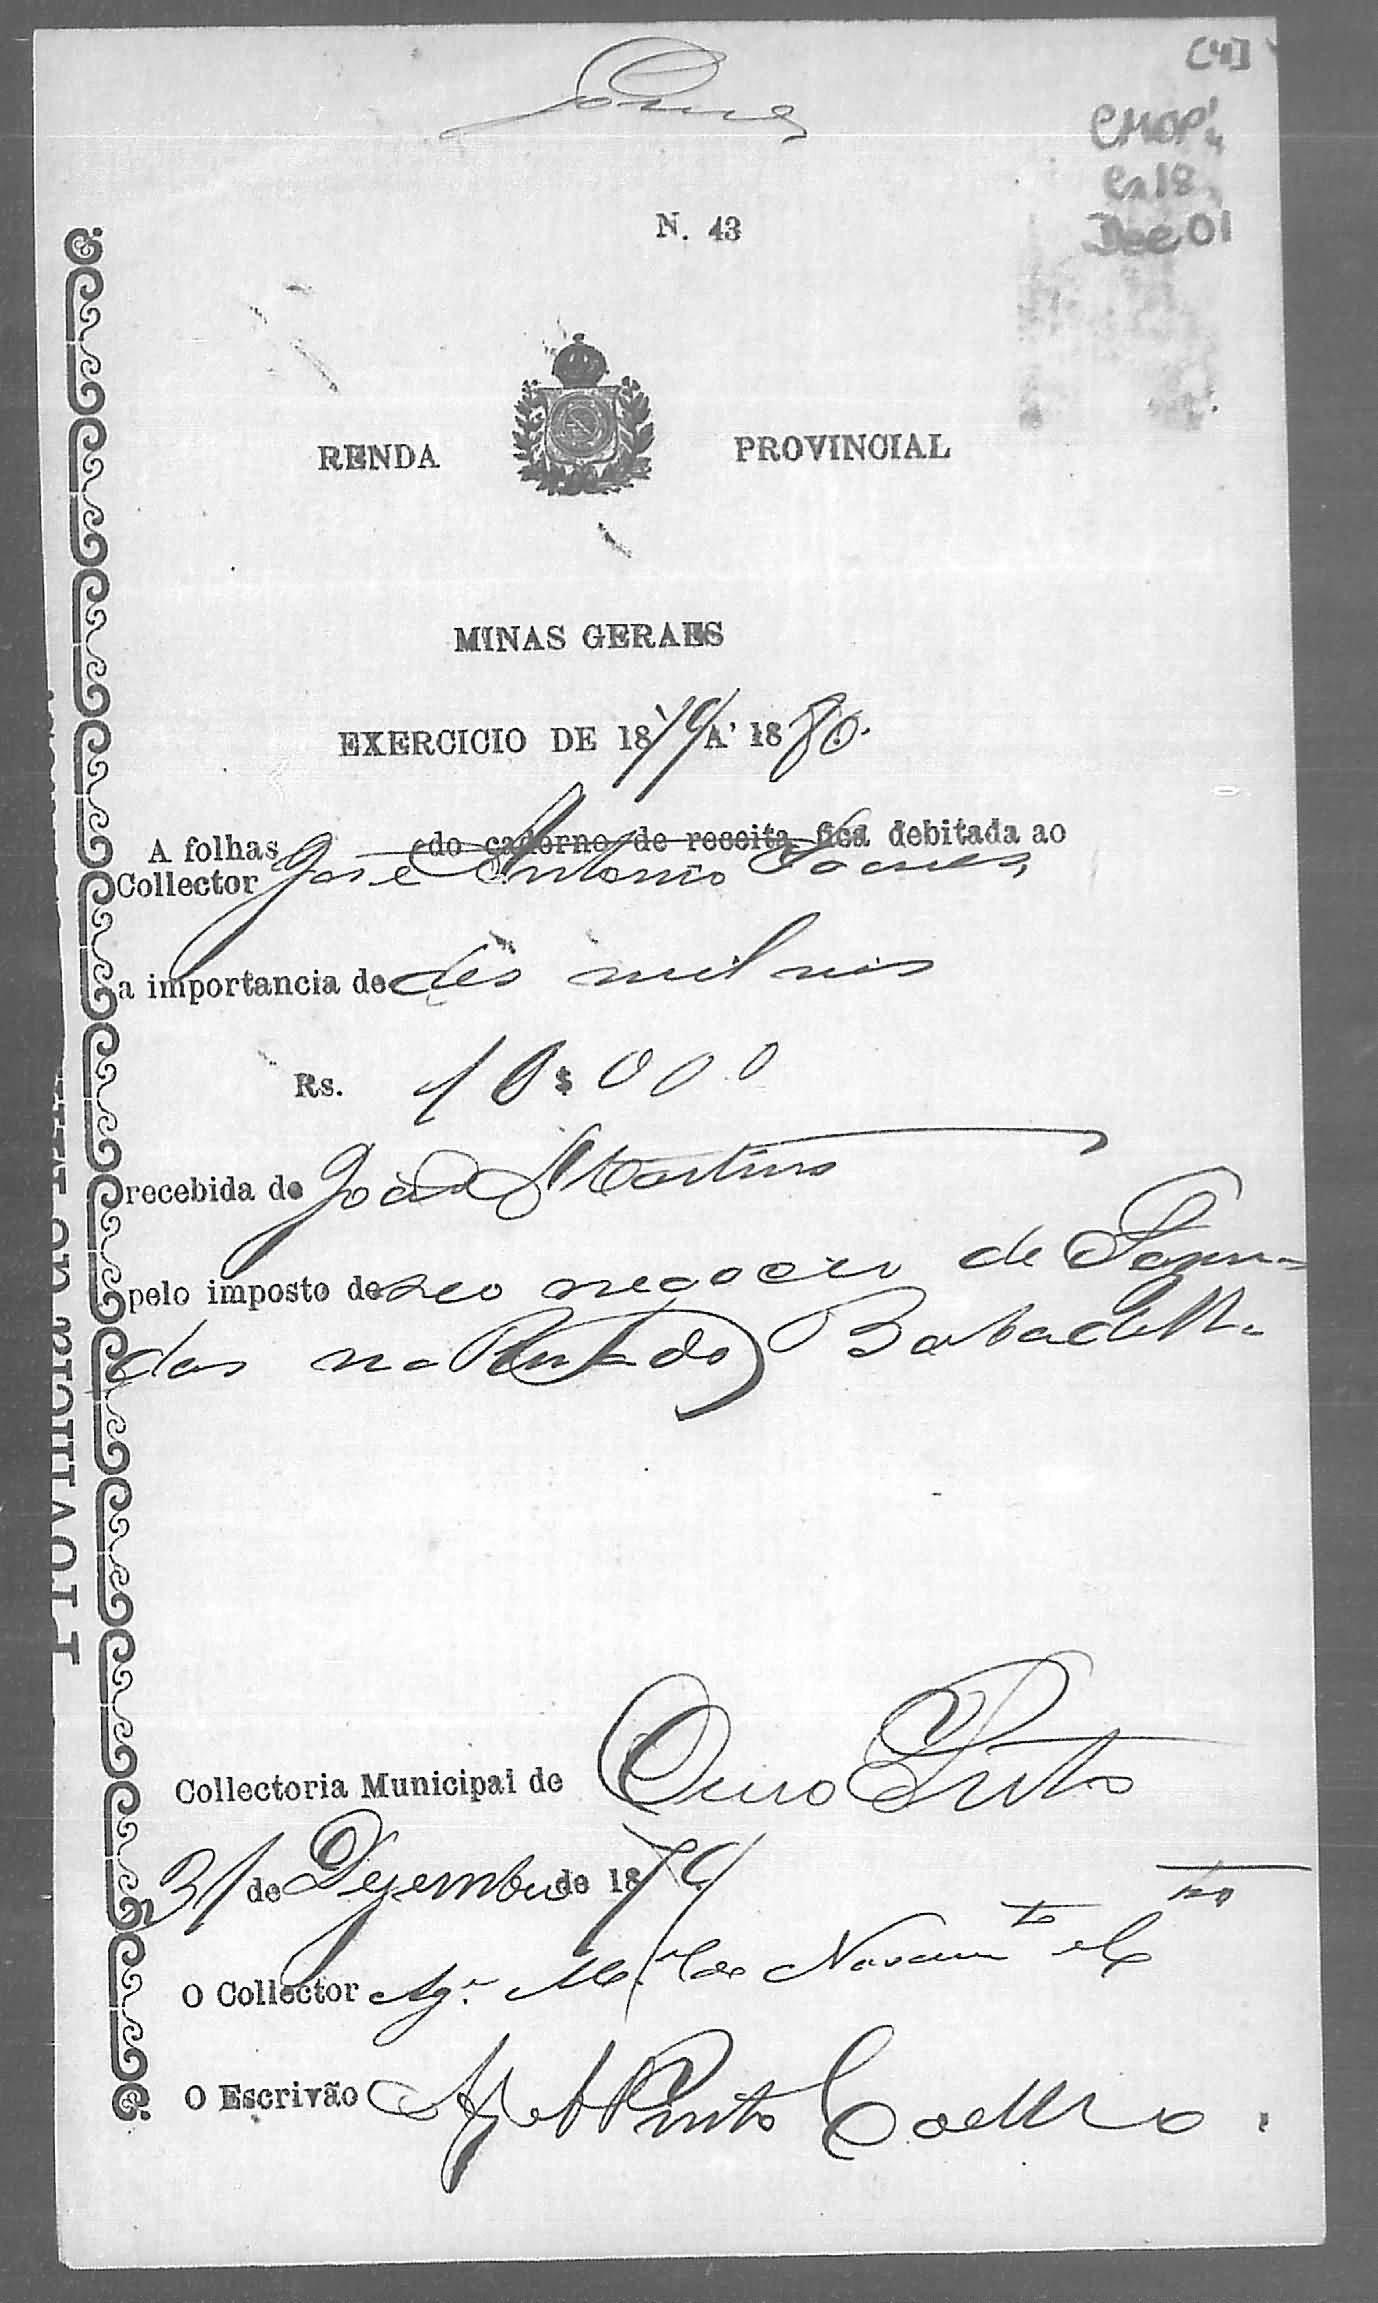 [4]
CMOP
Cx 18
Doc 01
N. 43
RENDA PROVINCIAL
MINAS GERAES
EXERCICIO DE 1879 A' 1880.
A folhas do caderno de receita fica debitada ao
Collector José Antonio Soares
a importancia de des mil reis
Rs. 10$000
recebida de João Martins
pelo imposto de seo negocio de Fasen-
das na do
Collectoria Municipal de Ouro Preto
31 de Dezembro de 1879
O Collector
O Escrivão Pinto Coelho.